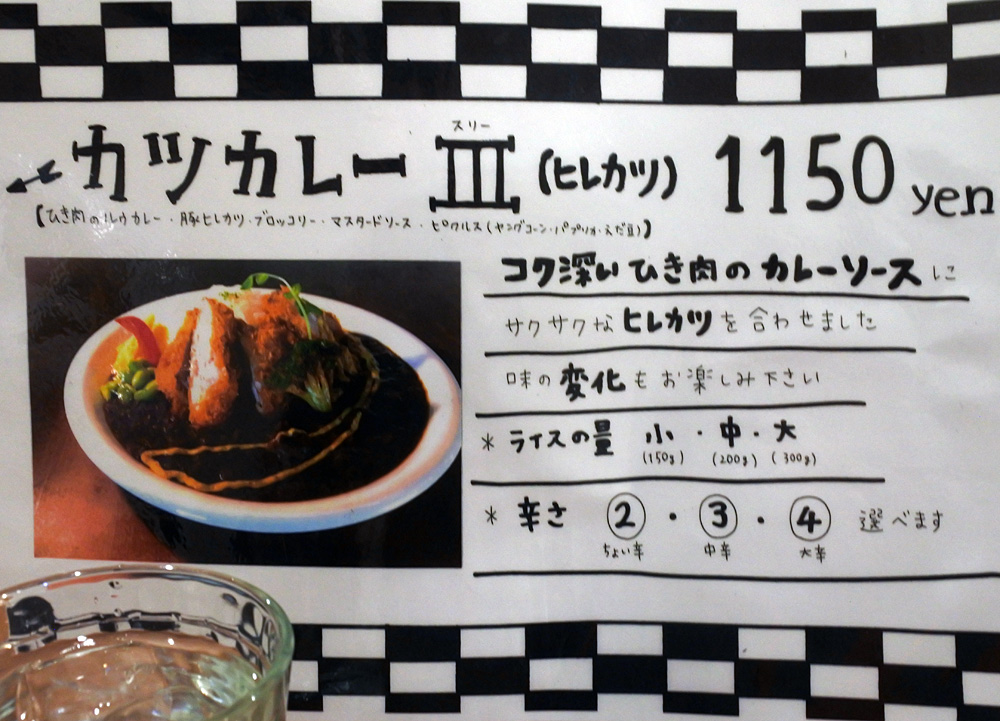 スリー
カツカレー III (ヒレカツ) 1150 yen
【ひき肉のルウカレー・豚ヒレカツ・ブロッコリー・マスタードソース・ピクルス(ヤングコーン・パプリカ・えだ豆)】
コク深いひき肉のカレーソースに
サクサクなヒレカツを合わせました
味の変化もお楽しみ下さい
* ライスの量 小・中・大
(150g) (200g) (300g)
* 辛さ ②・③・④ 選べます
ちょい辛 中辛 大辛